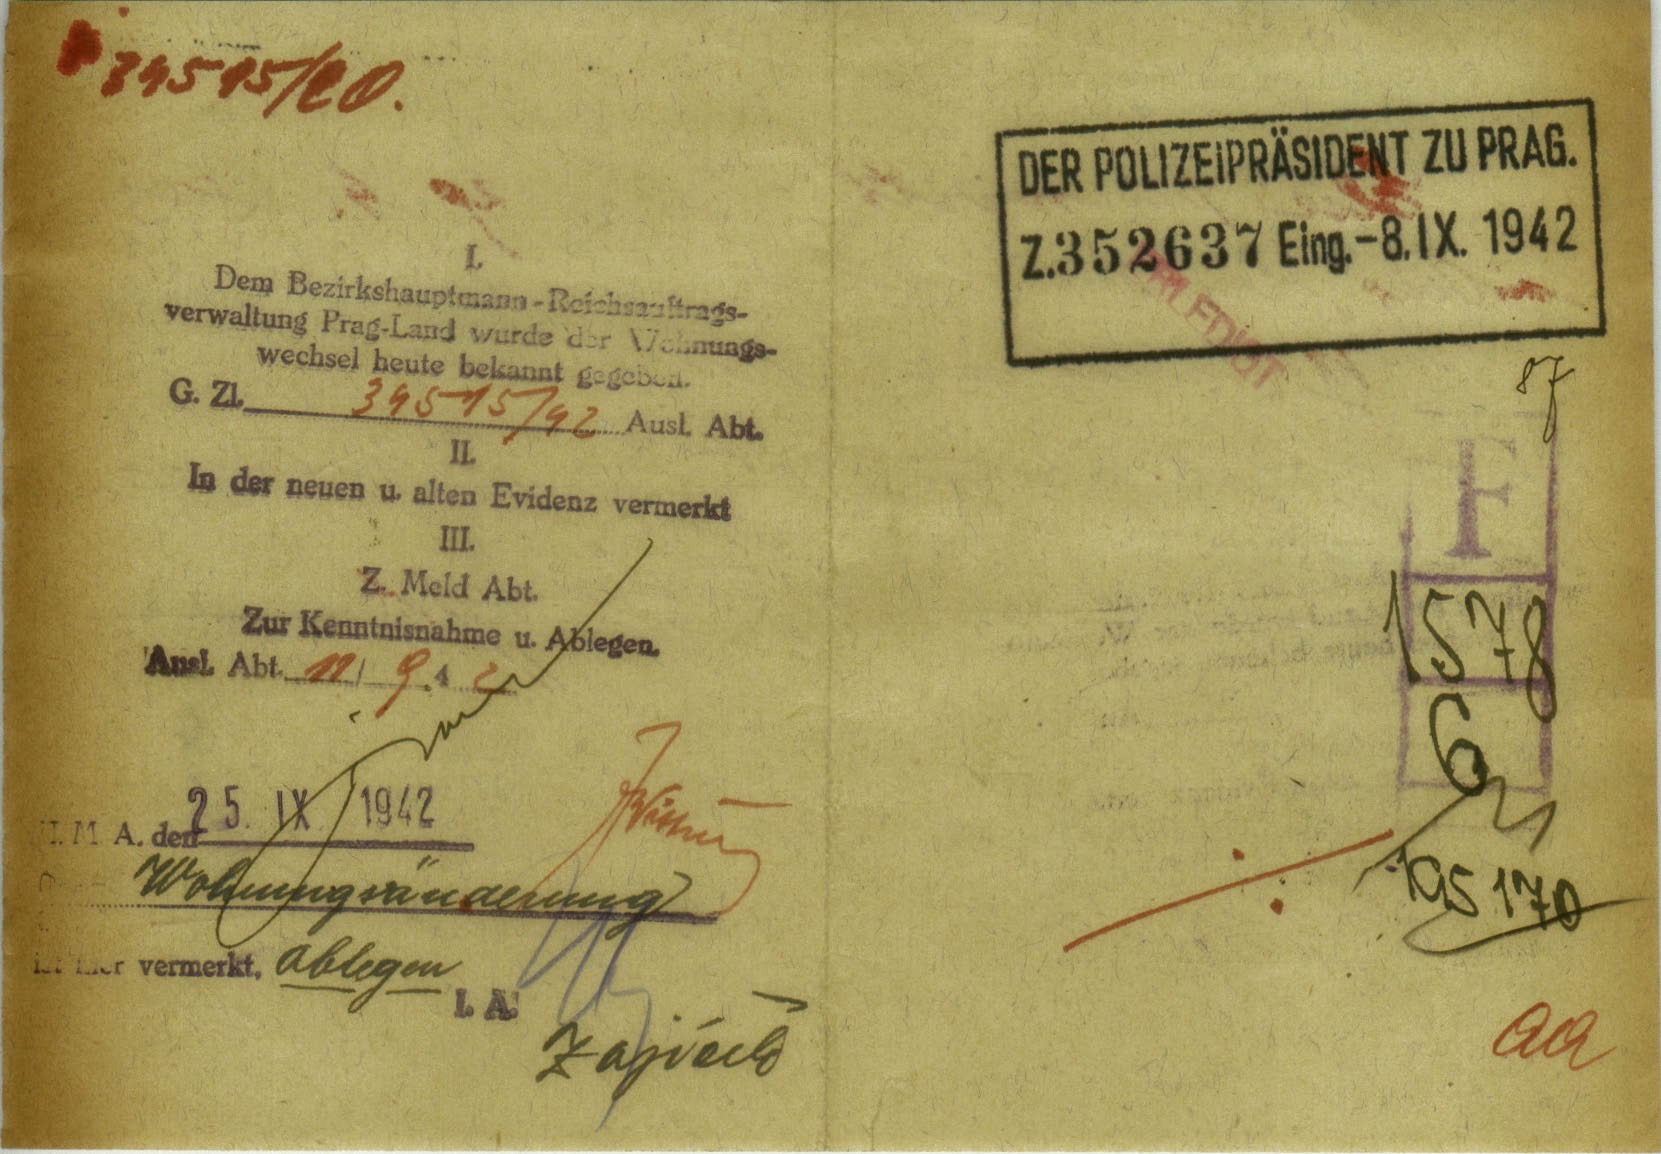 34515/
I.
Dem Bezirkshauptmann-Reichsauftrags-
verwaltung Prag-Land wurde der Wohnungs-
wechsel heute bekannt gegeben.
G. Zl. 34515/42 Ausl. Abt.
II.
In der neuen u. alten Evidenz vermerkt
III.
Z. Meld Abt.
Zur Kenntnisnahme u. Ablegen.
Ausl. Abt. 11/9.42
25. IX 1942
M. A. den
Wohnungsänderung
ist hier vermerkt, ablegen
I. A.
DER POLIZEIPRÄSIDENT ZU PRAG.
Z.352637 Eing.-8.IX. 1942
87
F
1578
6
195170